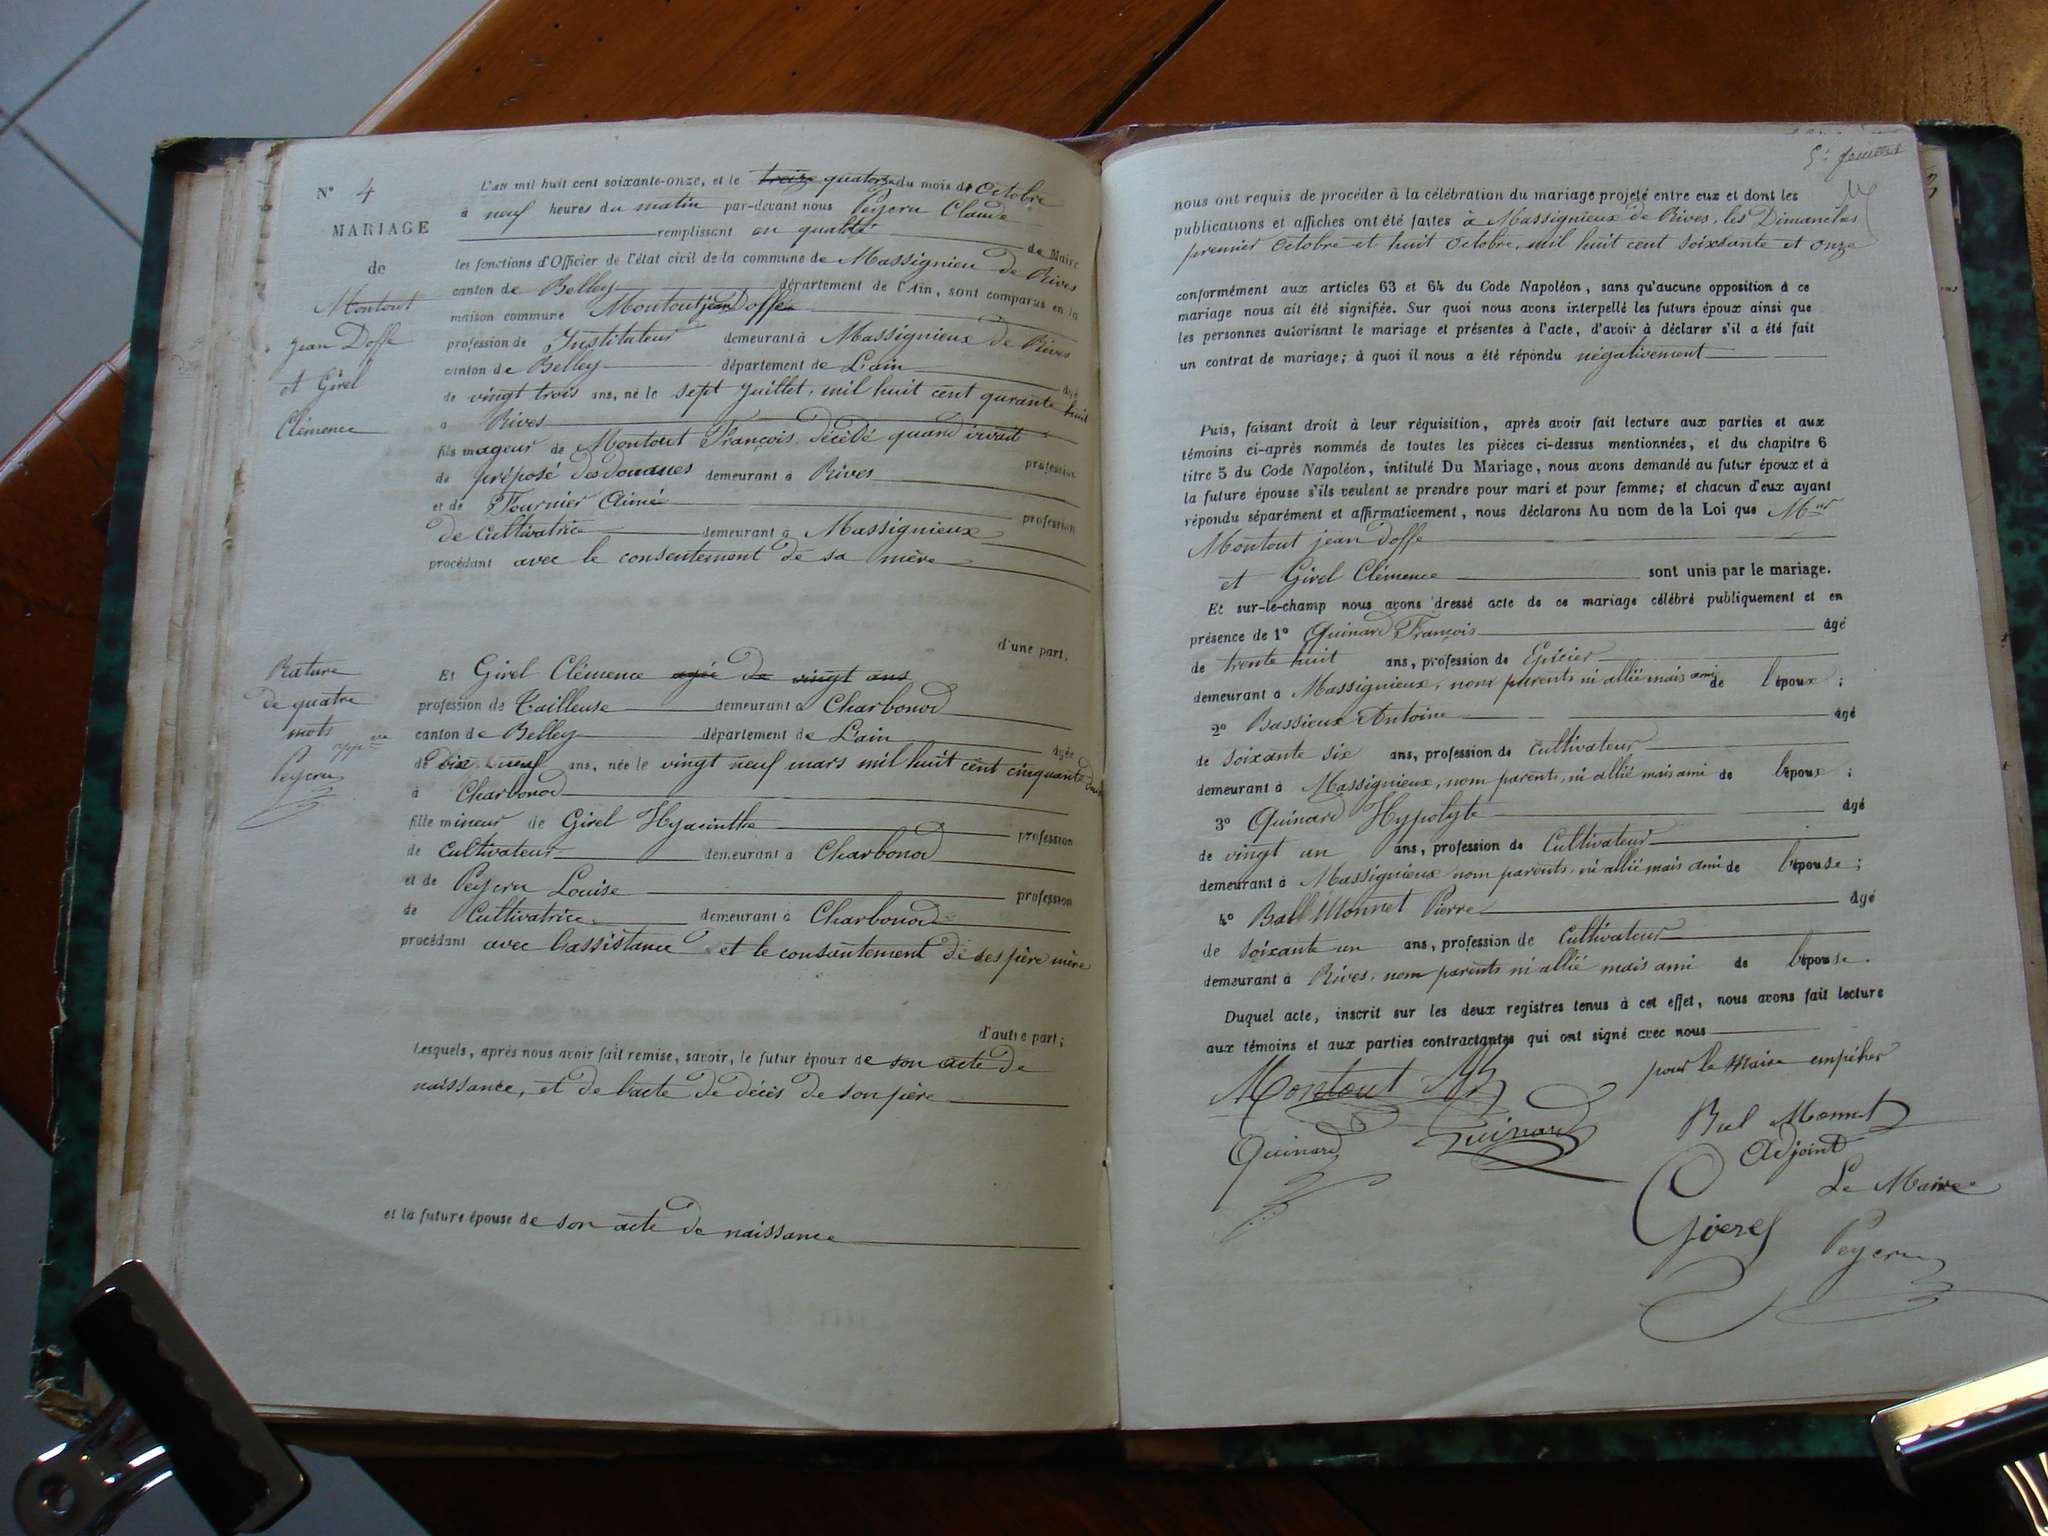 N° 4
MARIAGE
de
Montout
jean Doffe
et Girel
Clémence
L'an mil huit cent soixante-onze, et le treize quatorze du mois de Octobre
à neuf heures du matin par-devant nous Peycru Claude
remplissant en qualité de Maire
les fonctions d'Officier de l'état civil de la commune de Massignieu de Rives
canton de Belley département de l'Ain, sont comparus en la
maison commune Montout jean Doffe
profession de Instituteur demeurant à Massignieux de Rives
canton de Belley département de L'ain âgé
de vingt trois ans, né le sept juillet, mil huit cent qurante huit
à Rives
fils mageur de Montout François, décédé quand vivait profession
de préposé des douanes demeurant à Rives
et de Fournier Aimé profession
de Cultivatrice demeurant à Massignieux
procédant avec le consentement de sa mère
d'une part,
Rature
de quatre
mots
Peycru
Et Girel Clémence agée de vingt ans
profession de Tailleuse demeurant à Charbonod
canton de Belley département de L'ain âgée
de dix neuf ans, née le vingt neuf mars mil huit cent cinquante deux
à Charbonod
fille mineur de Girel Hyacinthe profession
de Cultivateur demeurant à Charbonod
et de Peycru Louise profession
de Cultivatrice demeurant à Charbonod
procédant avec l'assistance et le consentement de ses père mère
d'autre part;
Lesquels, après nous avoir fait remise, savoir, le futur époux de son acte de
naissance, et de l'acte de décès de son père
et la future épouse de son acte de naissance
nous ont requis de procéder à la célébration du mariage projeté entre eux et dont les
publications et affiches ont été faites à Massignieux de Rives, les Dimanches
premier Octobre et huit Octobre, mil huit cent soixsante et onze
conformément aux articles 63 et 64 du Code Napoléon, sans qu'aucune opposition à ce
mariage nous ait été signifiée. Sur quoi nous avons interpellé les futurs époux ainsi que
les personnes autorisant le mariage et présentes à l'acte, d'avoir à déclarer s'il a été fait
un contrat de mariage; à quoi il nous a été répondu négativement
Puis, faisant droit à leur réquisition, après avoir fait lecture aux parties et aux
témoins ci-après nommés de toutes les pièces ci-dessus mentionnées, et du chapitre 6
titre 5 du Code Napoléon, intitulé Du Mariage, nous avons demandé au futur époux et à
la future épouse s'ils veulent se prendre pour mari et pour femme; et chacun d'eux ayant
répondu séparément et affirmativement, nous déclarons Au nom de la Loi que
Montout jean doffe
et Girel Clémence sont unis par le mariage.
Et sur-le-champ nous avons dressé acte de ce mariage célébré publiquement et en
présence de 1° Quinard François âgé
de trente huit ans, profession de Epicier
demeurant à Massignieux, nom parents ni allié mais ami de l'époux;
2° Bassieux Antoine âgé
de soixante six ans, profession de Cultivateur
demeurant à Massignieux, nom parents, ni allié mais ami de l'époux;
3° Quinard Hypolyte âgé
de vingt un ans, profession de Cultivateur
demeurant à Massignieux nom parents, ni allié mais ami de l'épouse;
4° Bal Monnet Pierre âgé
de soixante un ans, profession de Cultivateur
demeurant à Rives, nom parents ni allié mais ami de l'épouse.
Duquel acte, inscrit sur les deux registres tenus à cet effet, nous avons fait lecture
aux témoins et aux parties contractantes qui ont signé avec nous
pour le Maire empêcher
Montout
Bal Monnet
Quinard Quinard
Adjoint
Le Maire
Girel
Peycru